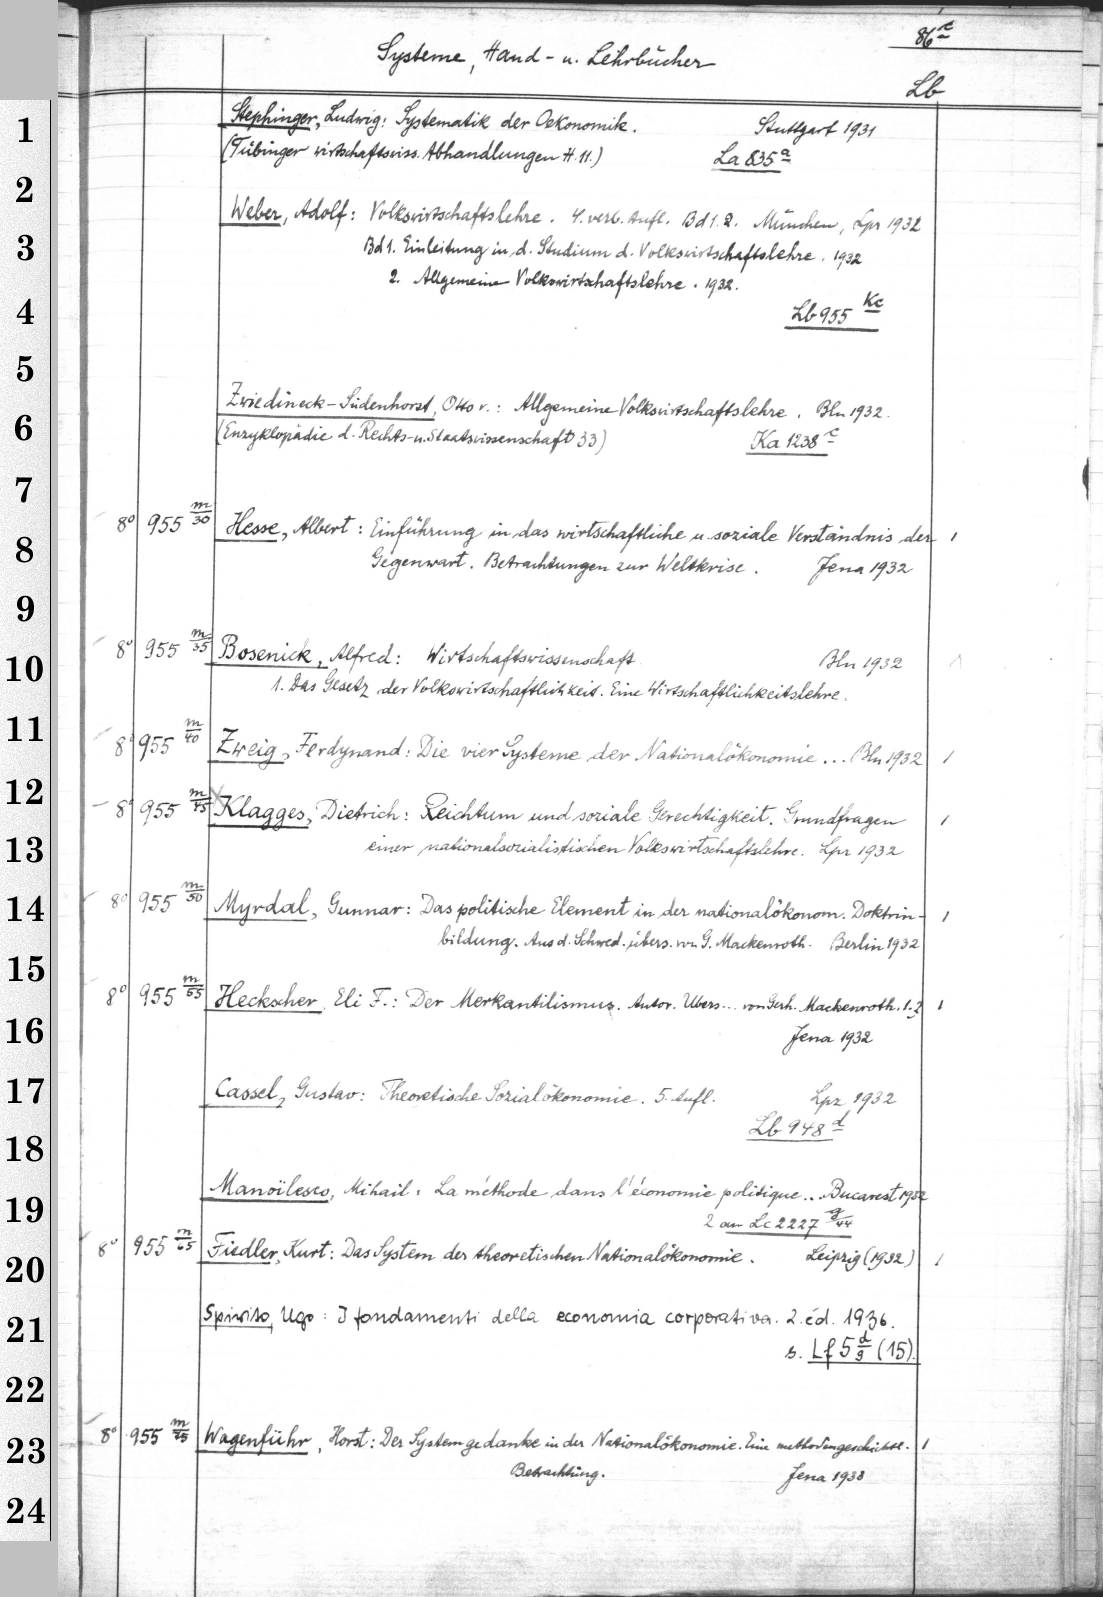 86c
Systeme, Hand- u. Lehrbücher
Lb
1
Stephinger, Ludwig: Systematik der Oekonomik. Stuttgart 1931
(Tübinger wirtschaftswiss. Abhandlungen H. 11.) La 835 a
2
Weber, Adolf: Volkswirtschaftslehre. 4. verb. Aufl. Bd 1. 2. München, Lpz 1932
3
Bd 1. Einleitung in d. Studium d. Volkswirtschaftslehre. 1932
2. Allgemeine Volkswirtschaftslehre. 1932.
4
Lb 955 Kc
5
Zwiedineck-Südenhorst, Otto v.: Allgemeine Volkswirtschaftslehre. Bln 1932.
6
(Enzyklopädie d. Rechts- u. Staatswissenschaft 33) Ka 1238 c
7
8° 955 m/30 Hesse, Albert: Einführung in das wirtschaftliche u. soziale Verständnis der 1
8
Gegenwart. Betrachtungen zur Weltkrise. Jena 1932
9
8° 955 m/35 Bosenick, Alfred: Wirtschaftswissenschaft. Bln 1932 1
10
1. Das Gesetz der Volkswirtschaftlichkeit. Eine Wirtschaftlichkeitslehre.
11
8° 955 m/40 Zweig, Ferdynand: Die vier Systeme der Nationalökonomie ... Bln 1932 1
12
8° 955 m/45 Klagges, Dietrich: Reichtum und soziale Gerechtigkeit. Grundfragen 1
13
einer nationalsozialistischen Volkswirtschaftslehre. Lpz 1932
14
8° 955 m/50 Myrdal, Gunnar: Das politische Element in der nationalökonom. Doktrin- 1
bildung. Aus d. Schwed. übers. von G. Mackenroth. Berlin 1932
15
8° 955 m/55 Heckscher, Eli F.: Der Merkantilismus. Autor. Übers... von Gerh. Mackenroth. 1. 2 1
16
Jena 1932
17
Cassel, Gustav: Theoretische Sozialökonomie. 5. Aufl. Lpz 1932
Lb 948 d
18
Manoïlesco, Mihail: La méthode dans l'économie politique.. Bucarest 1932
19
2 an Lc 2227 g/44
8° 955 m/65 Fiedler, Kurt: Das System der theoretischen Nationalökonomie. Leipzig (1932) 1
20
Spirito, Ugo: I fondamenti della economia corporativa. 2. éd. 1936.
21
s. Lf 5 d/9 (15).
22
8° 955 m/75 Wagenführ, Horst: Der Systemgedanke in der Nationalökonomie. Eine methodengeschichtl. 1
23
Betrachtung. Jena 1933
24